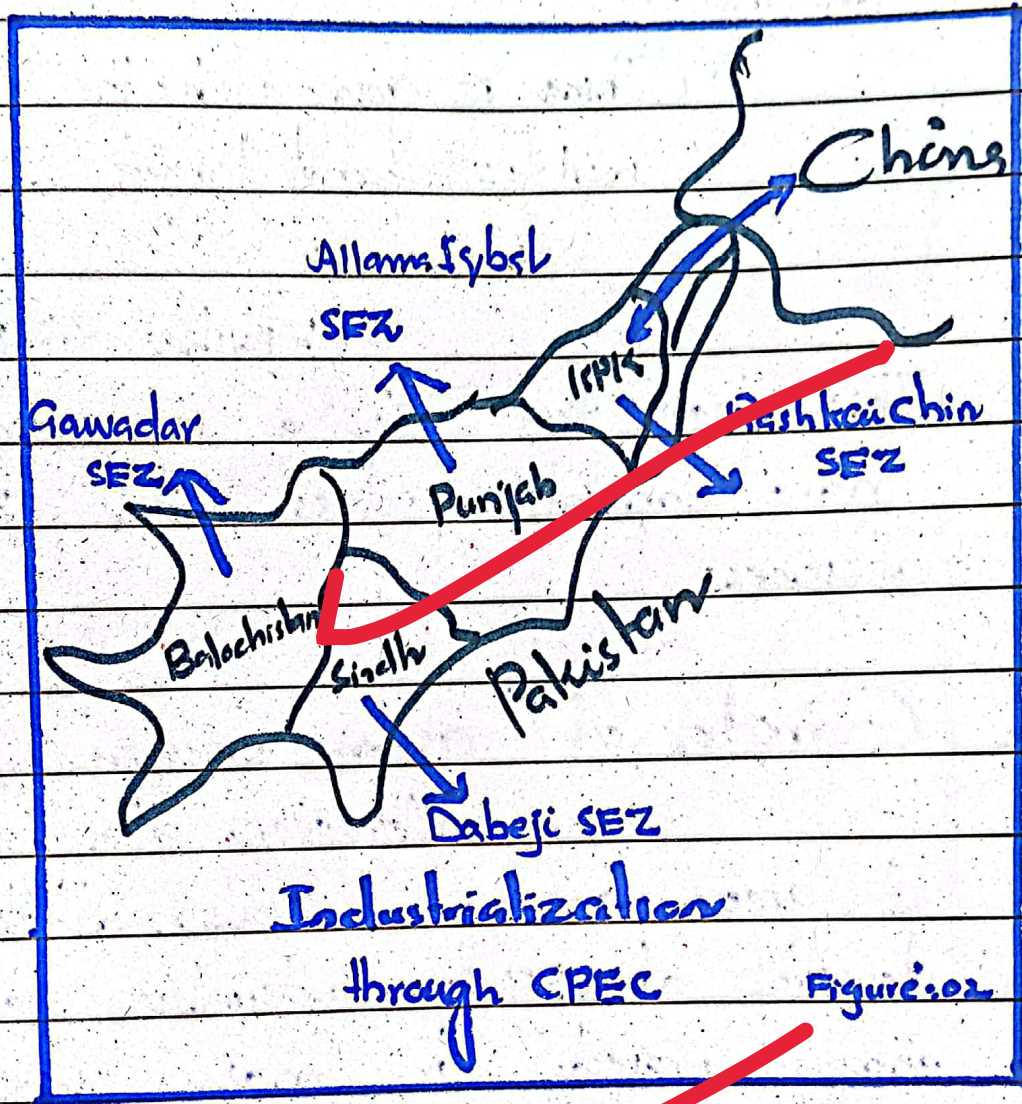 China
Allama Iqbal
SEZ
KPK
Gawadar
SEZ
Rashkai Chin
SEZ
Punjab
Balochistan
Sindh
Pakistan
Dabeji SEZ
Industrialization
through CPEC
Figure:02